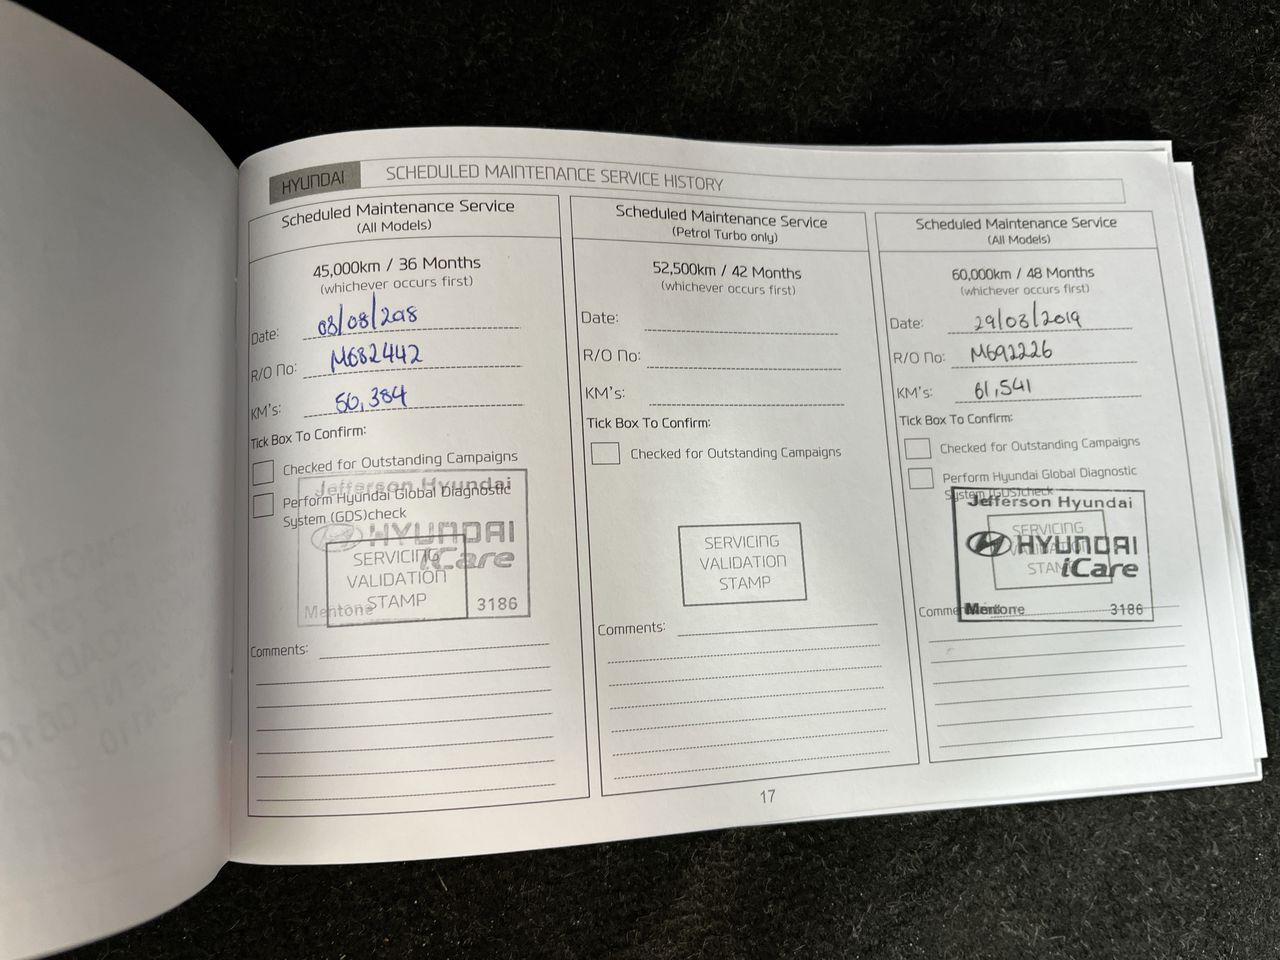 HYUNDAI SCHEDULED MAINTENANCE SERVICE HISTORY
Scheduled Maintenance Service
(All Models)
45,000km / 36 Months
(whichever occurs first)
Date: 08/08/2018
R/O No: M682442
KM's: 50,384
Tick Box To Confirm:
Checked for Outstanding Campaigns
Perform Hyundai Global Diagnostic
System (GDS)check
Jefferson Hyundai
HYUNDAI
iCare
Mentone 3186
SERVICING
VALIDATION
STAMP
Comments:
Scheduled Maintenance Service
(Petrol Turbo only)
52,500km / 42 Months
(whichever occurs first)
Date:
R/O No:
KM's:
Tick Box To Confirm:
Checked for Outstanding Campaigns
SERVICING
VALIDATION
STAMP
Comments:
Scheduled Maintenance Service
(All Models)
60,000km / 48 Months
(whichever occurs first)
Date: 29/03/2019
R/O No: M692226
KM's: 61,541
Tick Box To Confirm:
Checked for Outstanding Campaigns
Perform Hyundai Global Diagnostic
System (GDS)check
Jefferson Hyundai
HYUNDAI
iCare
Mentone 3186
SERVICING
VALIDATION
STAMP
Comments:
17